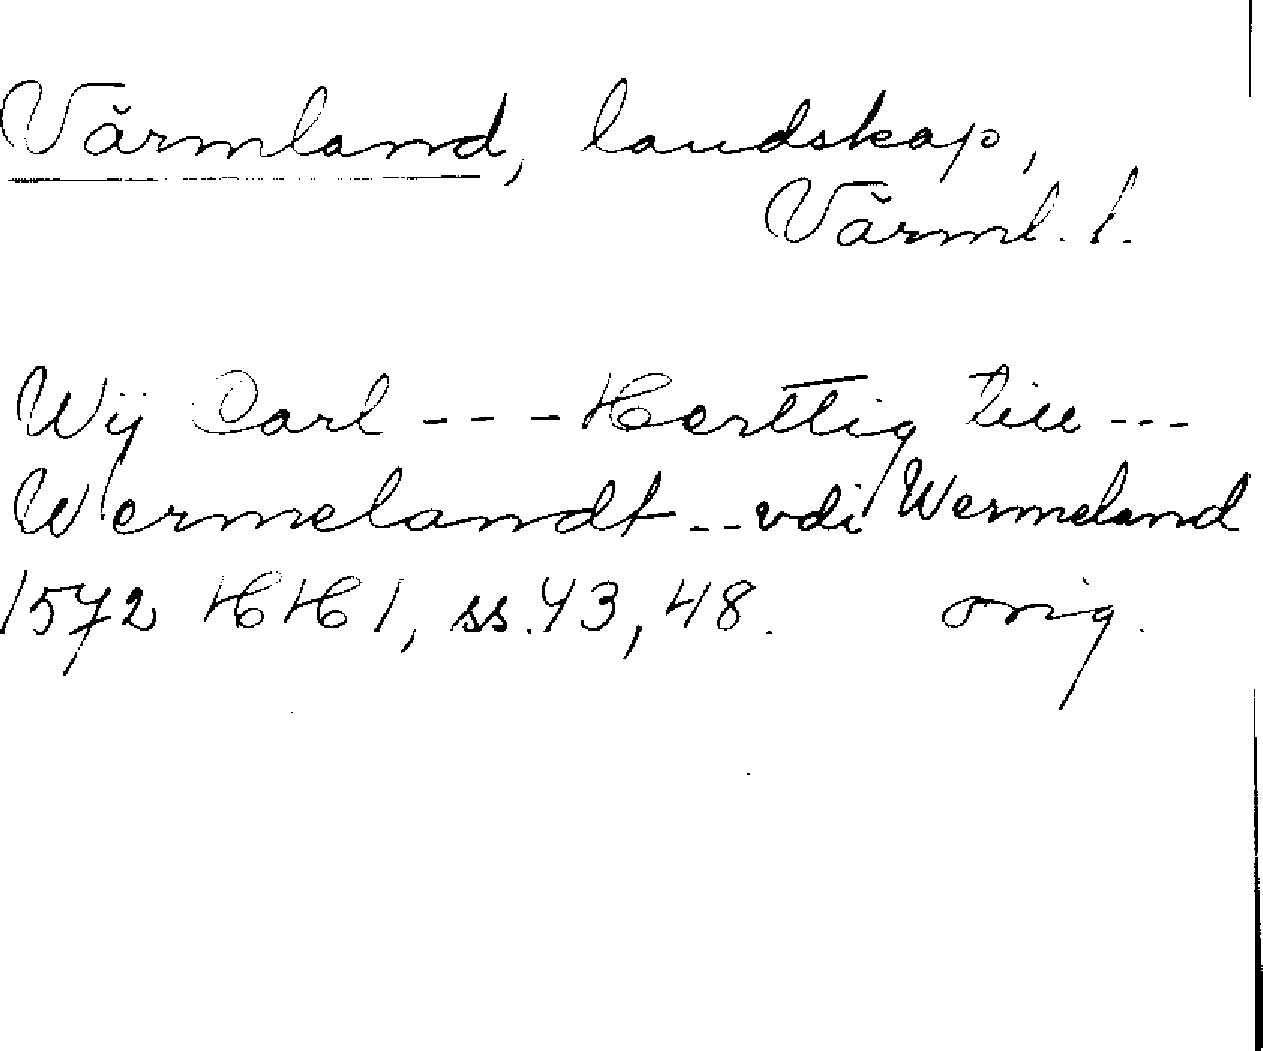 Värmland, landskap,
Värml. l.
Wij Carl --- Herttig till ---
Wermelandt -- vdi Wermeland
1572 HH 1, ss. 43, 48. orig.